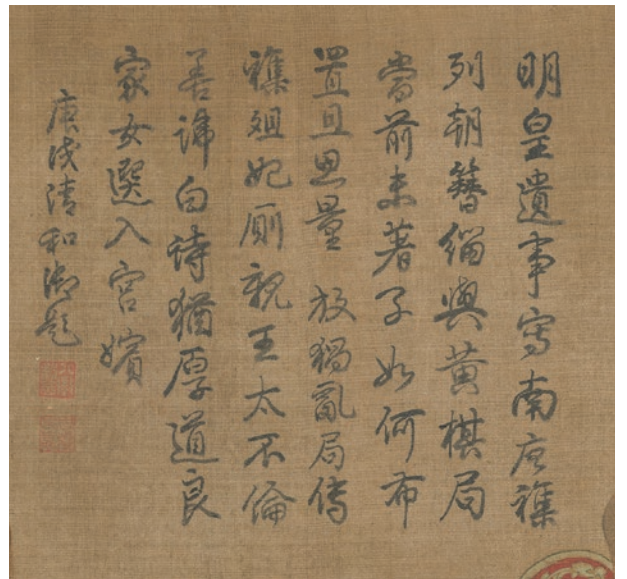 明皇遺事寫南唐襍
列朝簪緇與黃棋局
當前未著子如何布
置且思量 放猧亂局傳
襍俎妃厠親王太不倫
善諱白詩猶厚道良
家女選入宮嬪
庚戌清和御題